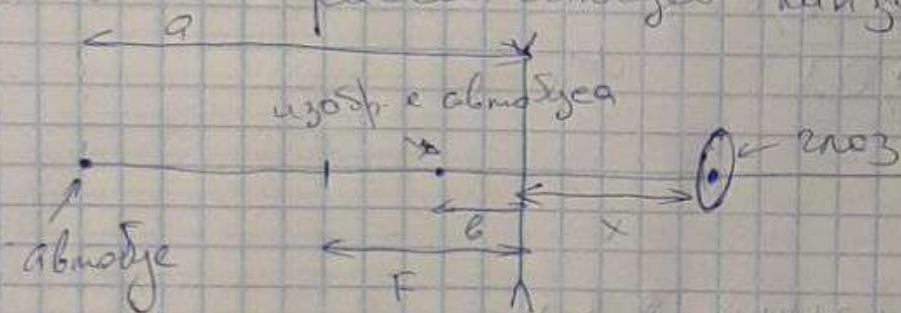 a
изобр-е автобуса
глаз
в
x
автобус
F